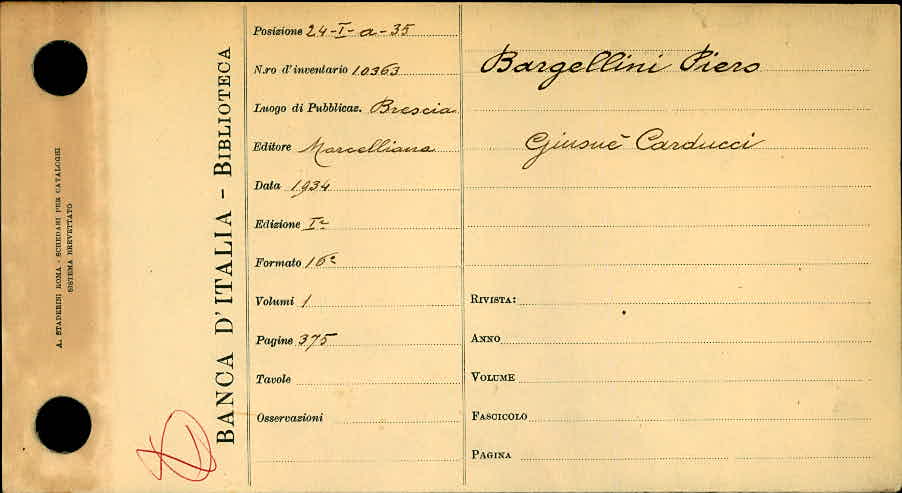 A. STADERINI ROMA - SCHEDARI PER CATALOGHI
SISTEMA BREVETTATO
BANCA D'ITALIA - BIBLIOTECA
Posizione 24-I-a-35
N.ro d'inventario 10363
Luogo di Pubblicaz. Brescia
Editore Morcelliana
Data 1934
Edizione Iª
Formato 16º
Volumi 1
Pagine 375
Tavole
Osservazioni
Bargellini Piero
Giusuè Carducci
RIVISTA:
ANNO
VOLUME
FASCICOLO
PAGINA